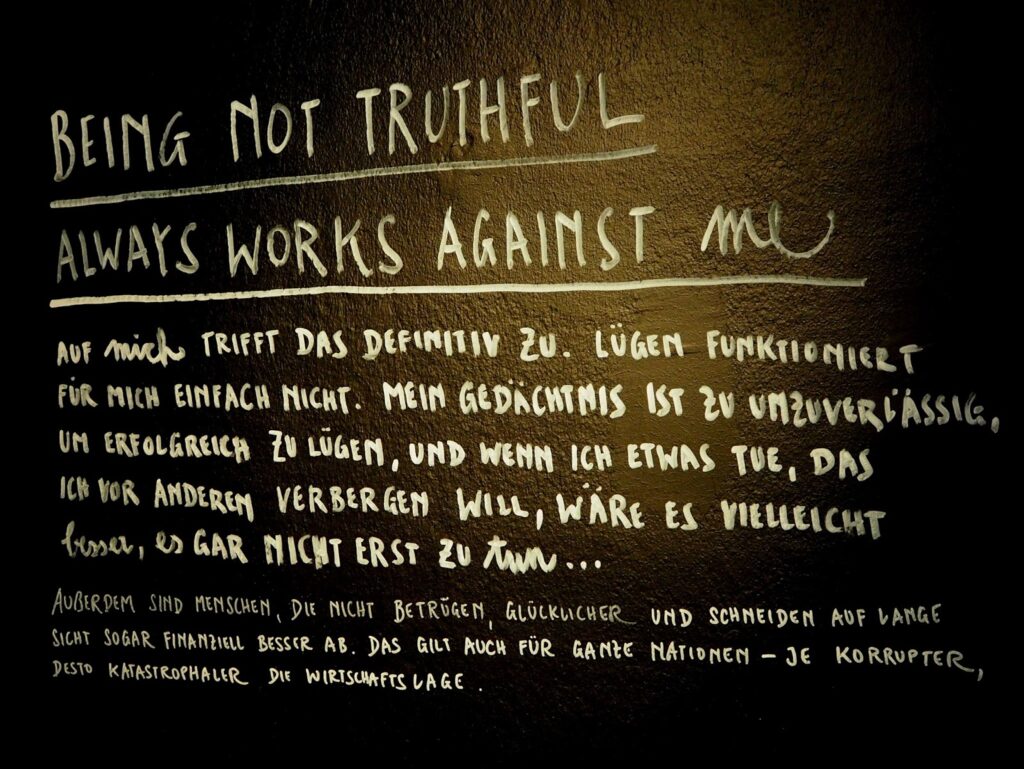 BEING NOT TRUTHFUL
ALWAYS WORKS AGAINST me
AUF mich TRIFFT DAS DEFINITIV ZU. LÜGEN FUNKTIONIERT
FÜR MICH EINFACH NICHT. MEIN GEDÄCHTNIS IST ZU UNZUVERLÄSSIG,
UM ERFOLGREICH ZU LÜGEN, UND WENN ICH ETWAS TUE, DAS
ICH VOR ANDEREN VERBERGEN WILL, WÄRE ES VIELLEICHT
besser, es GAR NICHT ERST ZU tun...
AUßERDEM SIND MENSCHEN, DIE NICHT BETRÜGEN, GLÜCKLICHER UND SCHNEIDEN AUF LANGE
SICHT SOGAR FINANZIELL BESSER AB. DAS GILT AUCH FÜR GANZE NATIONEN – JE KORRUPTER,
DESTO KATASTROPHALER DIE WIRTSCHAFTSLAGE.